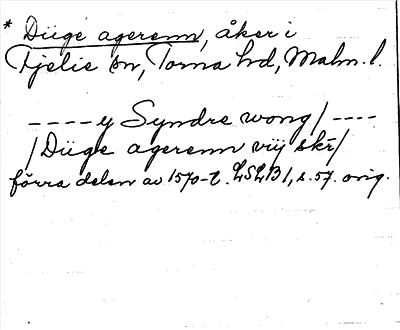 * Diige agerenn, åker i
Fjelie sn, Torna hd, Malm. l.
----ij Syndre wong/----
/Diige agerenn vij skr/
förra delen av 1570-t. LSLB1, s. 57. orig.